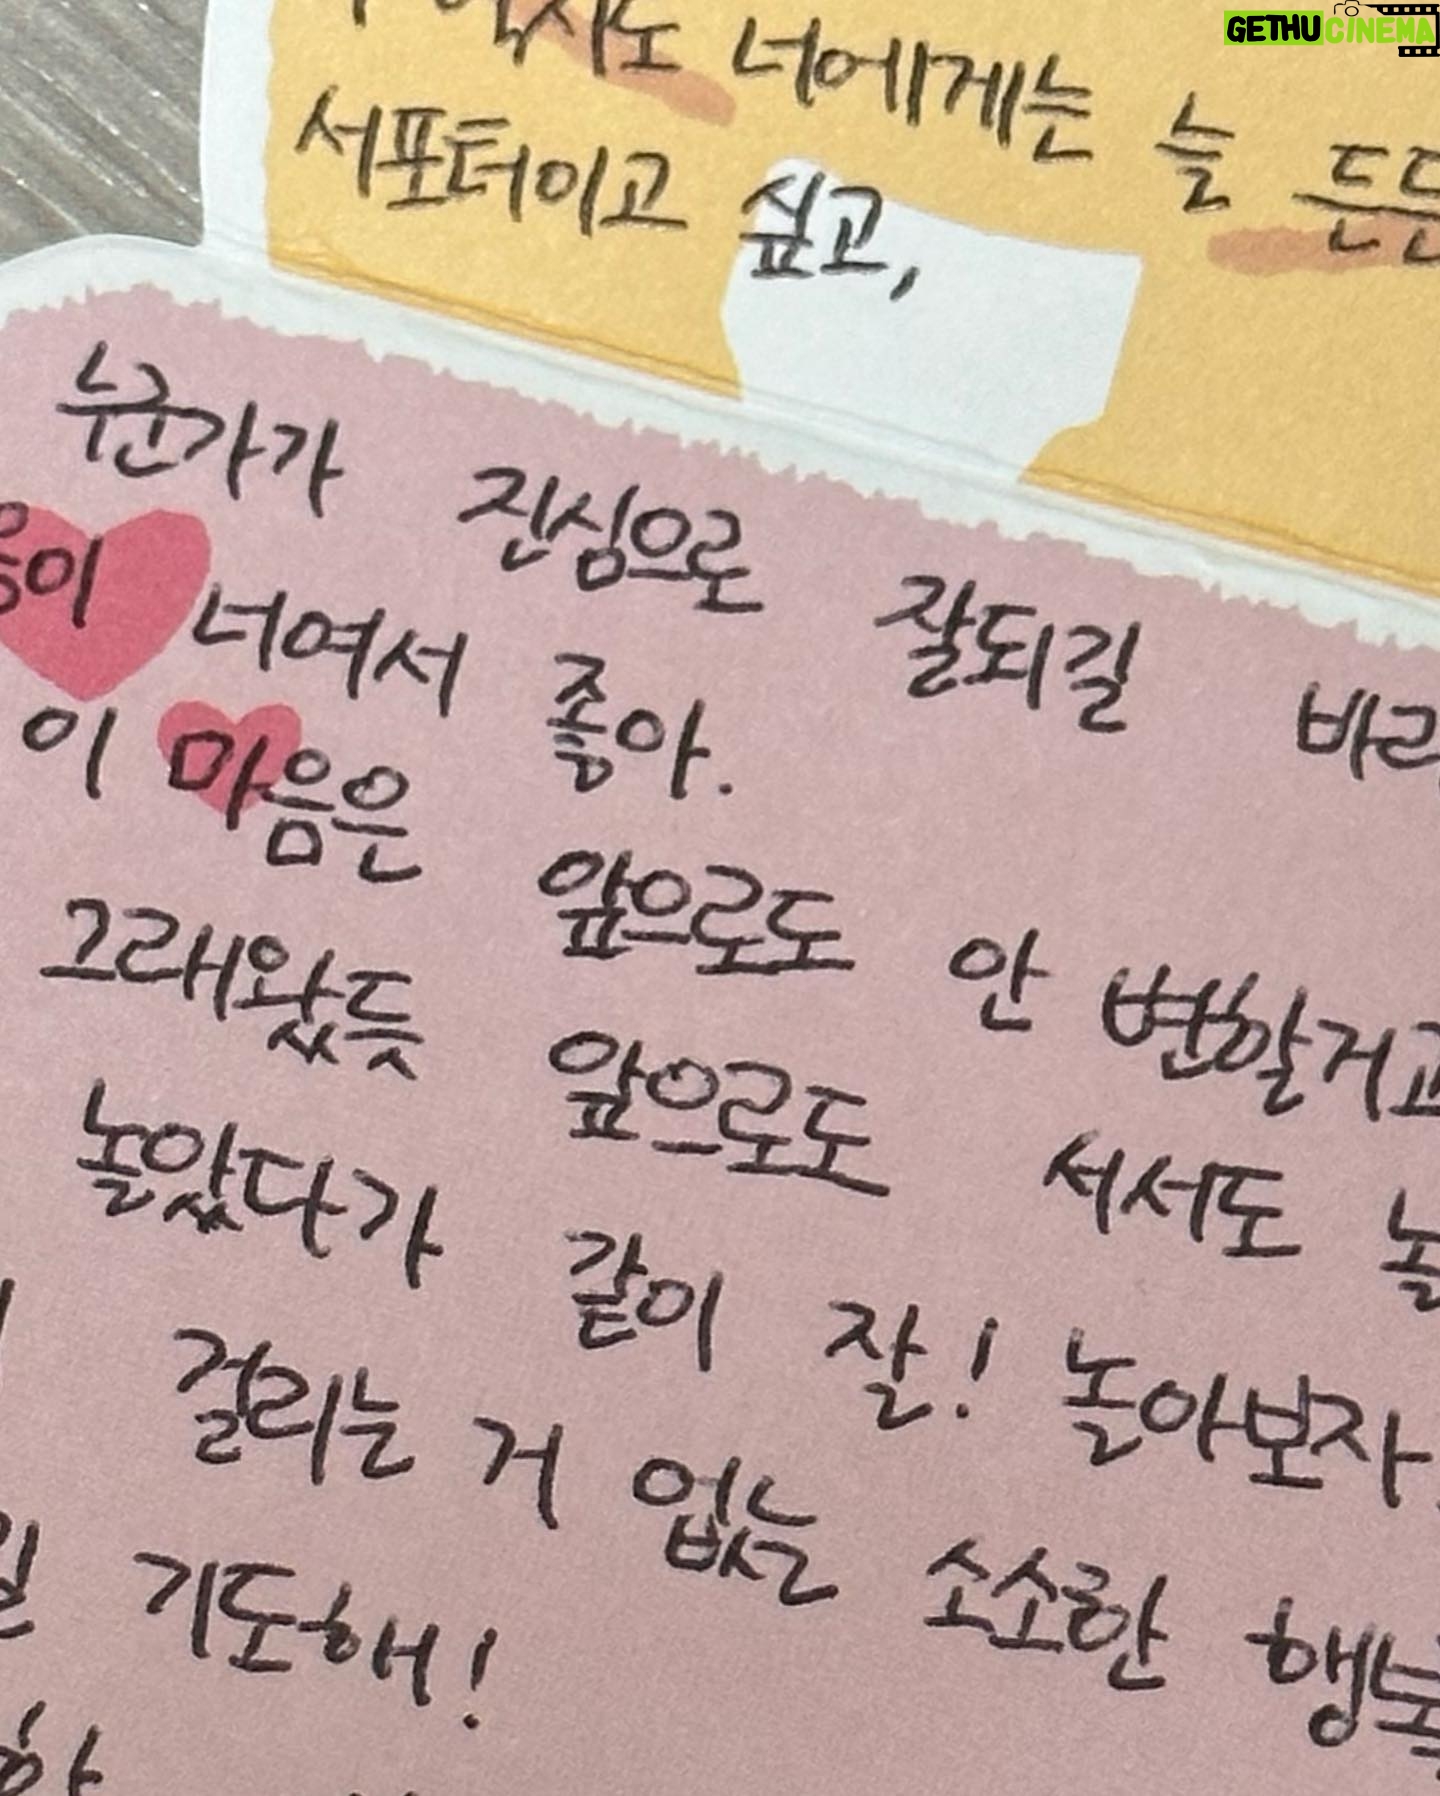 GETHUCINEMA
너에게는 늘 든든
서포터이고 싶고,
누군가가 진심으로 잘되길 바라
너여서 좋아.
이 마음은 앞으로도 안 변할거고
그래왔듯 앞으로도 서서도 놀
놀았다가 같이 잘! 놀아보자
걸리는 거 없는 소소한 행복
기도해!